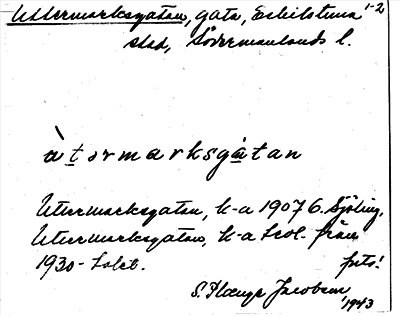 Uttermarksgatan, gata, Eskilstuna 1-2
stad, Södermanlands l.
àtərmarksgɑtan
Utermarksgatan, k-a 1907 G. Sjöling.
Utermarksgatan, k-a Leol. från
1930-talet. foto!
S. Plange Jacobson
1943